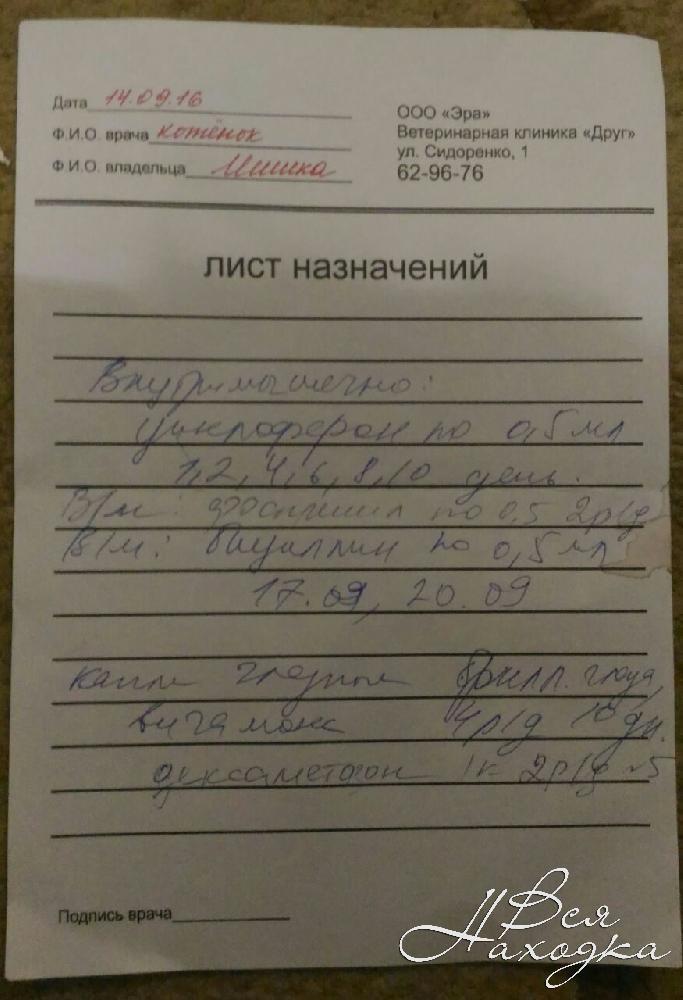 Дата 14.09.16
Ф.И.О. врача котёнок
Ф.И.О. владельца Мишка
ООО «Эра»
Ветеринарная клиника «Друг»
ул. Сидоренко, 1
62-96-76
лист назначений
Внутримышечно:
циклоферон по 0,5 мл
1,2,4,6,8,10 день.
В/м: фоспренил по 0,5 2р/д
В/м: бициллин по 0,5 мл
17.09, 20.09
капли глазные Брилл. глаза,
вигамокс 4р/д 10 дн.
дексаметазон 1к 2р/д №5
Подпись врача
Вся
Находка